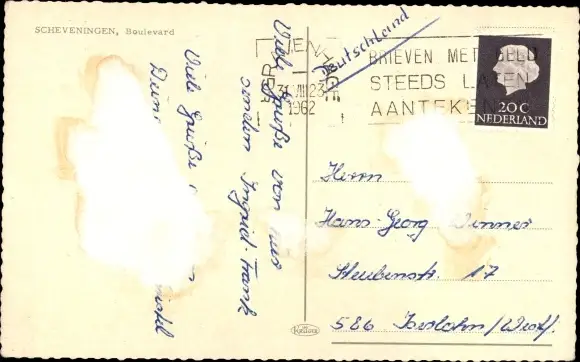 SCHEVENINGEN, Boulevard
Viele Grüße
Viele Grüße von uns
senden Ingrid-Frank
Deutschland
31.VII.23
1962
BRIEVEN MET GELD
STEEDS LATEN
AANTEKENEN
20 C
NEDERLAND
Herrn
Hans-Georg
Steubenstr. 17
586 Iserlohn/Westf.